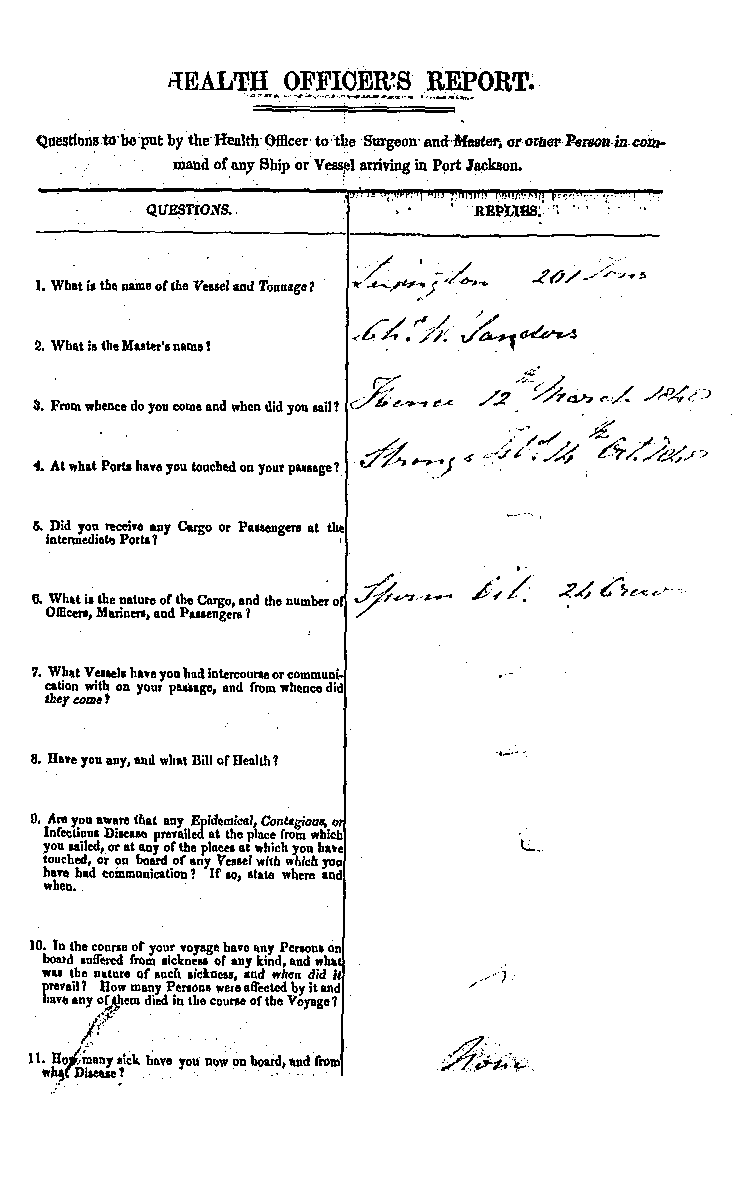 HEALTH OFFICER'S REPORT.
Questions to be put by the Health Officer to the Surgeon and Master, or other Person in com-
mand of any Ship or Vessel arriving in Port Jackson.
QUESTIONS.
REPLIES.
1. What is the name of the Vessel and Tonnage?
Lexington 201 Tons
2. What is the Master's name?
W. Sanders
3. From whence do you come and when did you sail?
Hence 12th March 1840
4. At what Ports have you touched on your passage?
Strongs Isld. 14th Oct. 1840
5. Did you receive any Cargo or Passengers at the
intermediate Ports?
6. What is the nature of the Cargo, and the number of
Officers, Mariners, and Passengers?
Sperm Oil. 24 Crew
7. What Vessels have you had intercourse or communi-
cation with on your passage, and from whence did
they come?
8. Have you any, and what Bill of Health?
9. Are you aware that any Epidemical, Contagious, or
Infectious Disease prevailed at the place from which
you sailed, or at any of the places at which you have
touched, or on board of any Vessel with which you
have had communication? If so, state where and
when.
10. In the course of your voyage have any Persons on
board suffered from sickness of any kind, and what
was the nature of such sickness, and when did it
prevail? How many Persons were affected by it and
have any of them died in the course of the Voyage?
11. How many sick have you now on board, and from
what Disease?
None